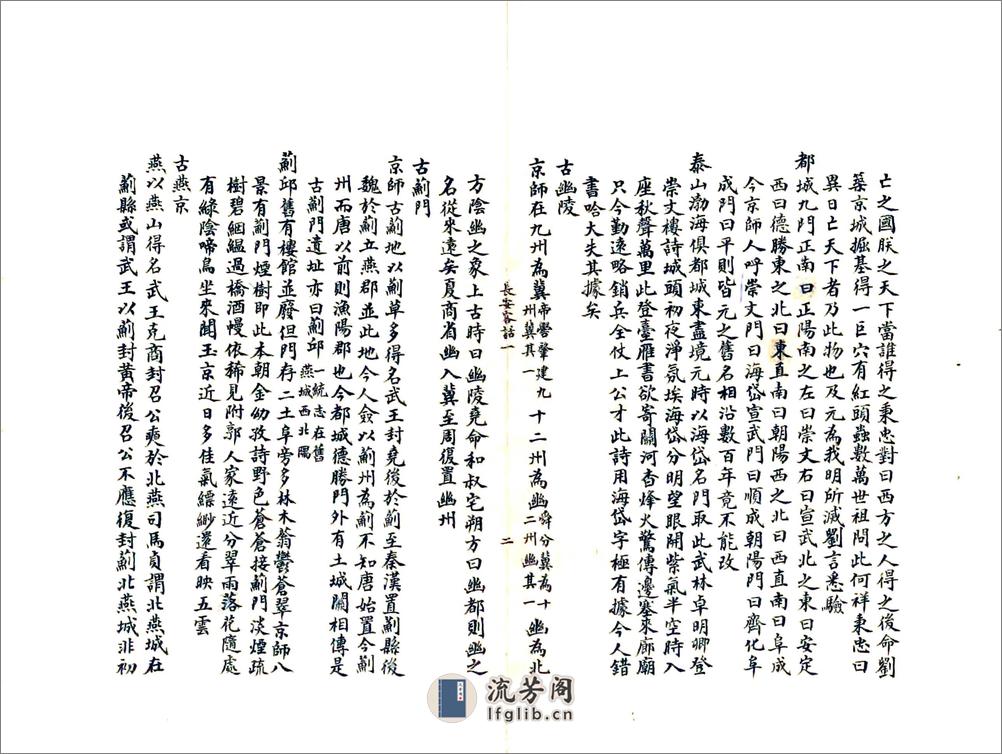 亡之國朕之天下當誰得之秉忠對曰西方之人得之後命劉
築京城掘基得一巨穴有紅頭蟲數萬世祖問此何祥秉忠曰
異日亡天下者乃此物也及元為我明所滅劉言悉驗
都城九門正南曰正陽南之左曰崇文右曰宣武北之東曰安定
西曰德勝東之北曰東直南曰朝陽西之北曰西直南曰阜成
今京師人呼崇文門曰海岱宣武門曰順成朝陽門曰齊化阜
成門曰平則皆元之舊名相沿數百年竟不能改
泰山渤海俱都城東盡境元時以海岱名門取此武林卓明卿登
崇文樓詩城頭初夜淨氛埃海岱分明望眼開紫氣半空時入
座秋聲萬里此登臺雁書欲寄關河杳烽火驚傳邊塞來廊廟
只今勤遠略銷兵全仗上公才此詩用海岱字極有據今人錯
書哈大失其據矣
古幽陵
京師在九州為冀帝嚳肇建九州冀其一十二州為幽舜分冀為十二州幽其一幽為北
長安客話一
二
方陰幽之象上古時曰幽陵堯命和叔宅朔方曰幽都則幽之
名從來遠矣夏商省幽入冀至周復置幽州
古薊門
京師古薊地以薊草多得名武王封堯後於薊至秦漢置薊縣後
魏於薊立燕郡並此地今人僉以薊州為薊不知唐始置今薊
州而唐以前則漁陽郡也今都城德勝門外有土城關相傳是
古薊門遺址亦曰薊邱一統志在舊燕城西北隅
薊邱舊有樓館並廢但門存二土阜旁多林木蓊鬱蒼翠京師八
景有薊門煙樹即此本朝金幼孜詩野色蒼蒼接薊門淡煙疏
樹碧絪縕過橋酒幔依稀見附郭人家遠近分翠雨落花隨處
有綠陰啼鳥坐來聞玉京近日多佳氣縹緲還看映五雲
古燕京
燕以燕山得名武王克商封召公奭於北燕司馬貞謂北燕城在
薊縣或謂武王以薊封黃帝後召公不應復封薊北燕城非初
流芳閣
lfglib.cn